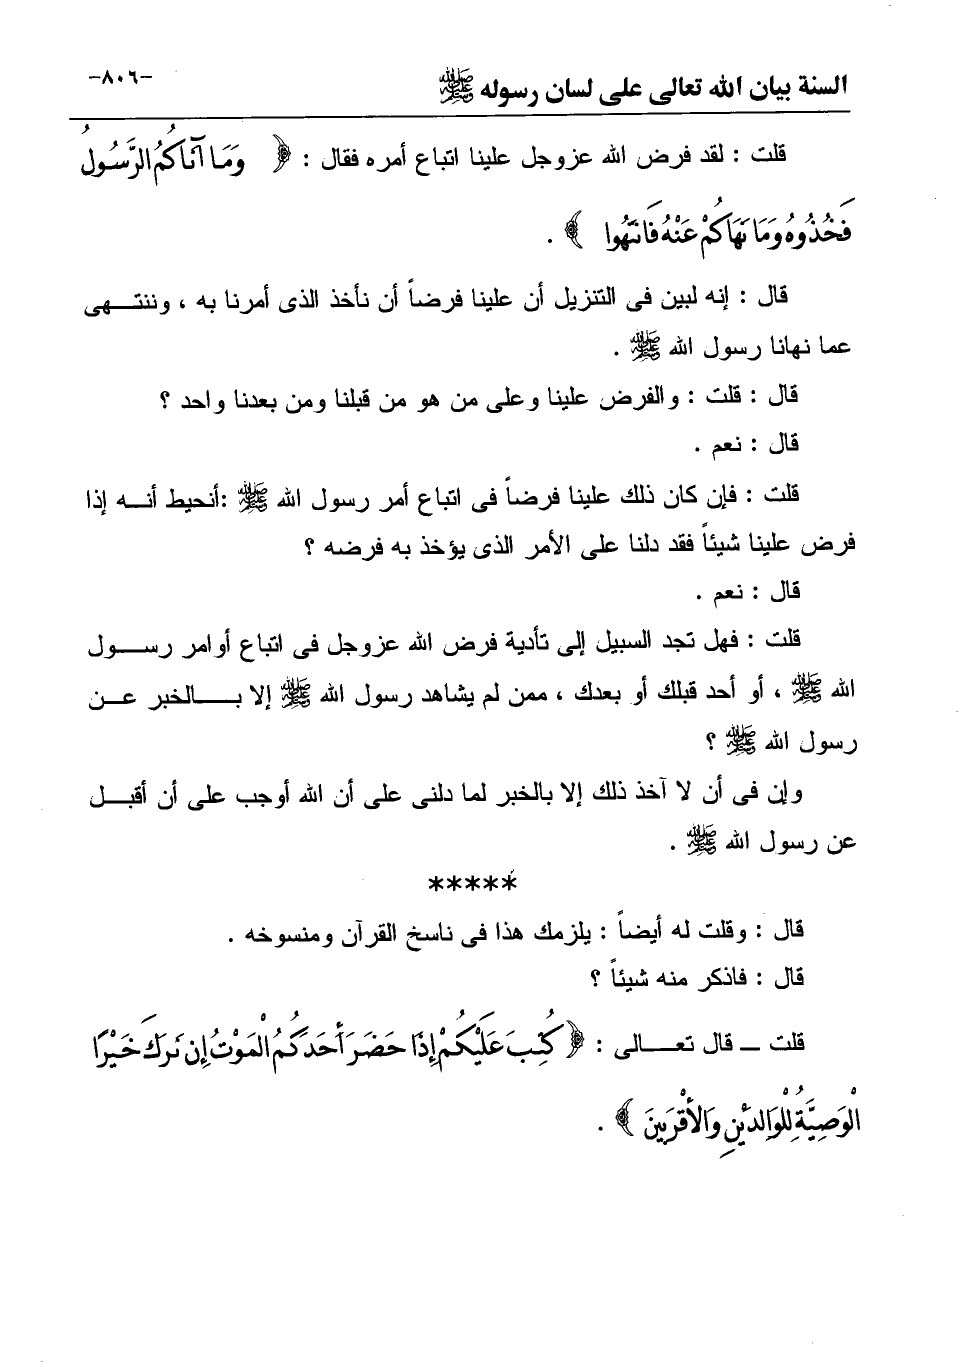 السنة بيان الله تعالى على لسان رسوله ﷺ
-٨٠٦-
قلت : لقد فرض الله عزوجل علينا اتباع أمره فقال : ﴿ وَمَا آتَاكُمُ الرَّسُولُ
فَخُذُوهُ وَمَا نَهَاكُمْ عَنْهُ فَانْتَهُوا ﴾ .
قال : إنه لبين فى التنزيل أن علينا فرضاً أن نأخذ الذى أمرنا به ، وننتهى
عما نهانا رسول الله ﷺ .
قال : قلت : والفرض علينا وعلى من هو من قبلنا ومن بعدنا واحد ؟
قال : نعم .
قلت : فإن كان ذلك علينا فرضاً فى اتباع أمر رسول الله ﷺ :أنحيط أنه إذا
فرض علينا شيئاً فقد دلنا على الأمر الذى يؤخذ به فرضه ؟
قال : نعم .
قلت : فهل تجد السبيل إلى تأدية فرض الله عزوجل فى اتباع أوامر رسول
الله ﷺ ، أو أحد قبلك أو بعدك ، ممن لم يشاهد رسول الله ﷺ إلا بالخبر عن
رسول الله ﷺ ؟
وإن فى أن لا آخذ ذلك إلا بالخبر لما دلنى على أن الله أوجب على أن أقبل
عن رسول الله ﷺ .
*****
قال : وقلت له أيضاً : يلزمك هذا فى ناسخ القرآن ومنسوخه .
قال : فاذكر منه شيئاً ؟
قلت ــ قال تعالى : ﴿ كُتِبَ عَلَيْكُمْ إِذَا حَضَرَ أَحَدَكُمُ الْمَوْتُ إِن تَرَكَ خَيْرًا
الْوَصِيَّةُ لِلْوَالِدَيْنِ وَالأَقْرَبِينَ ﴾ .